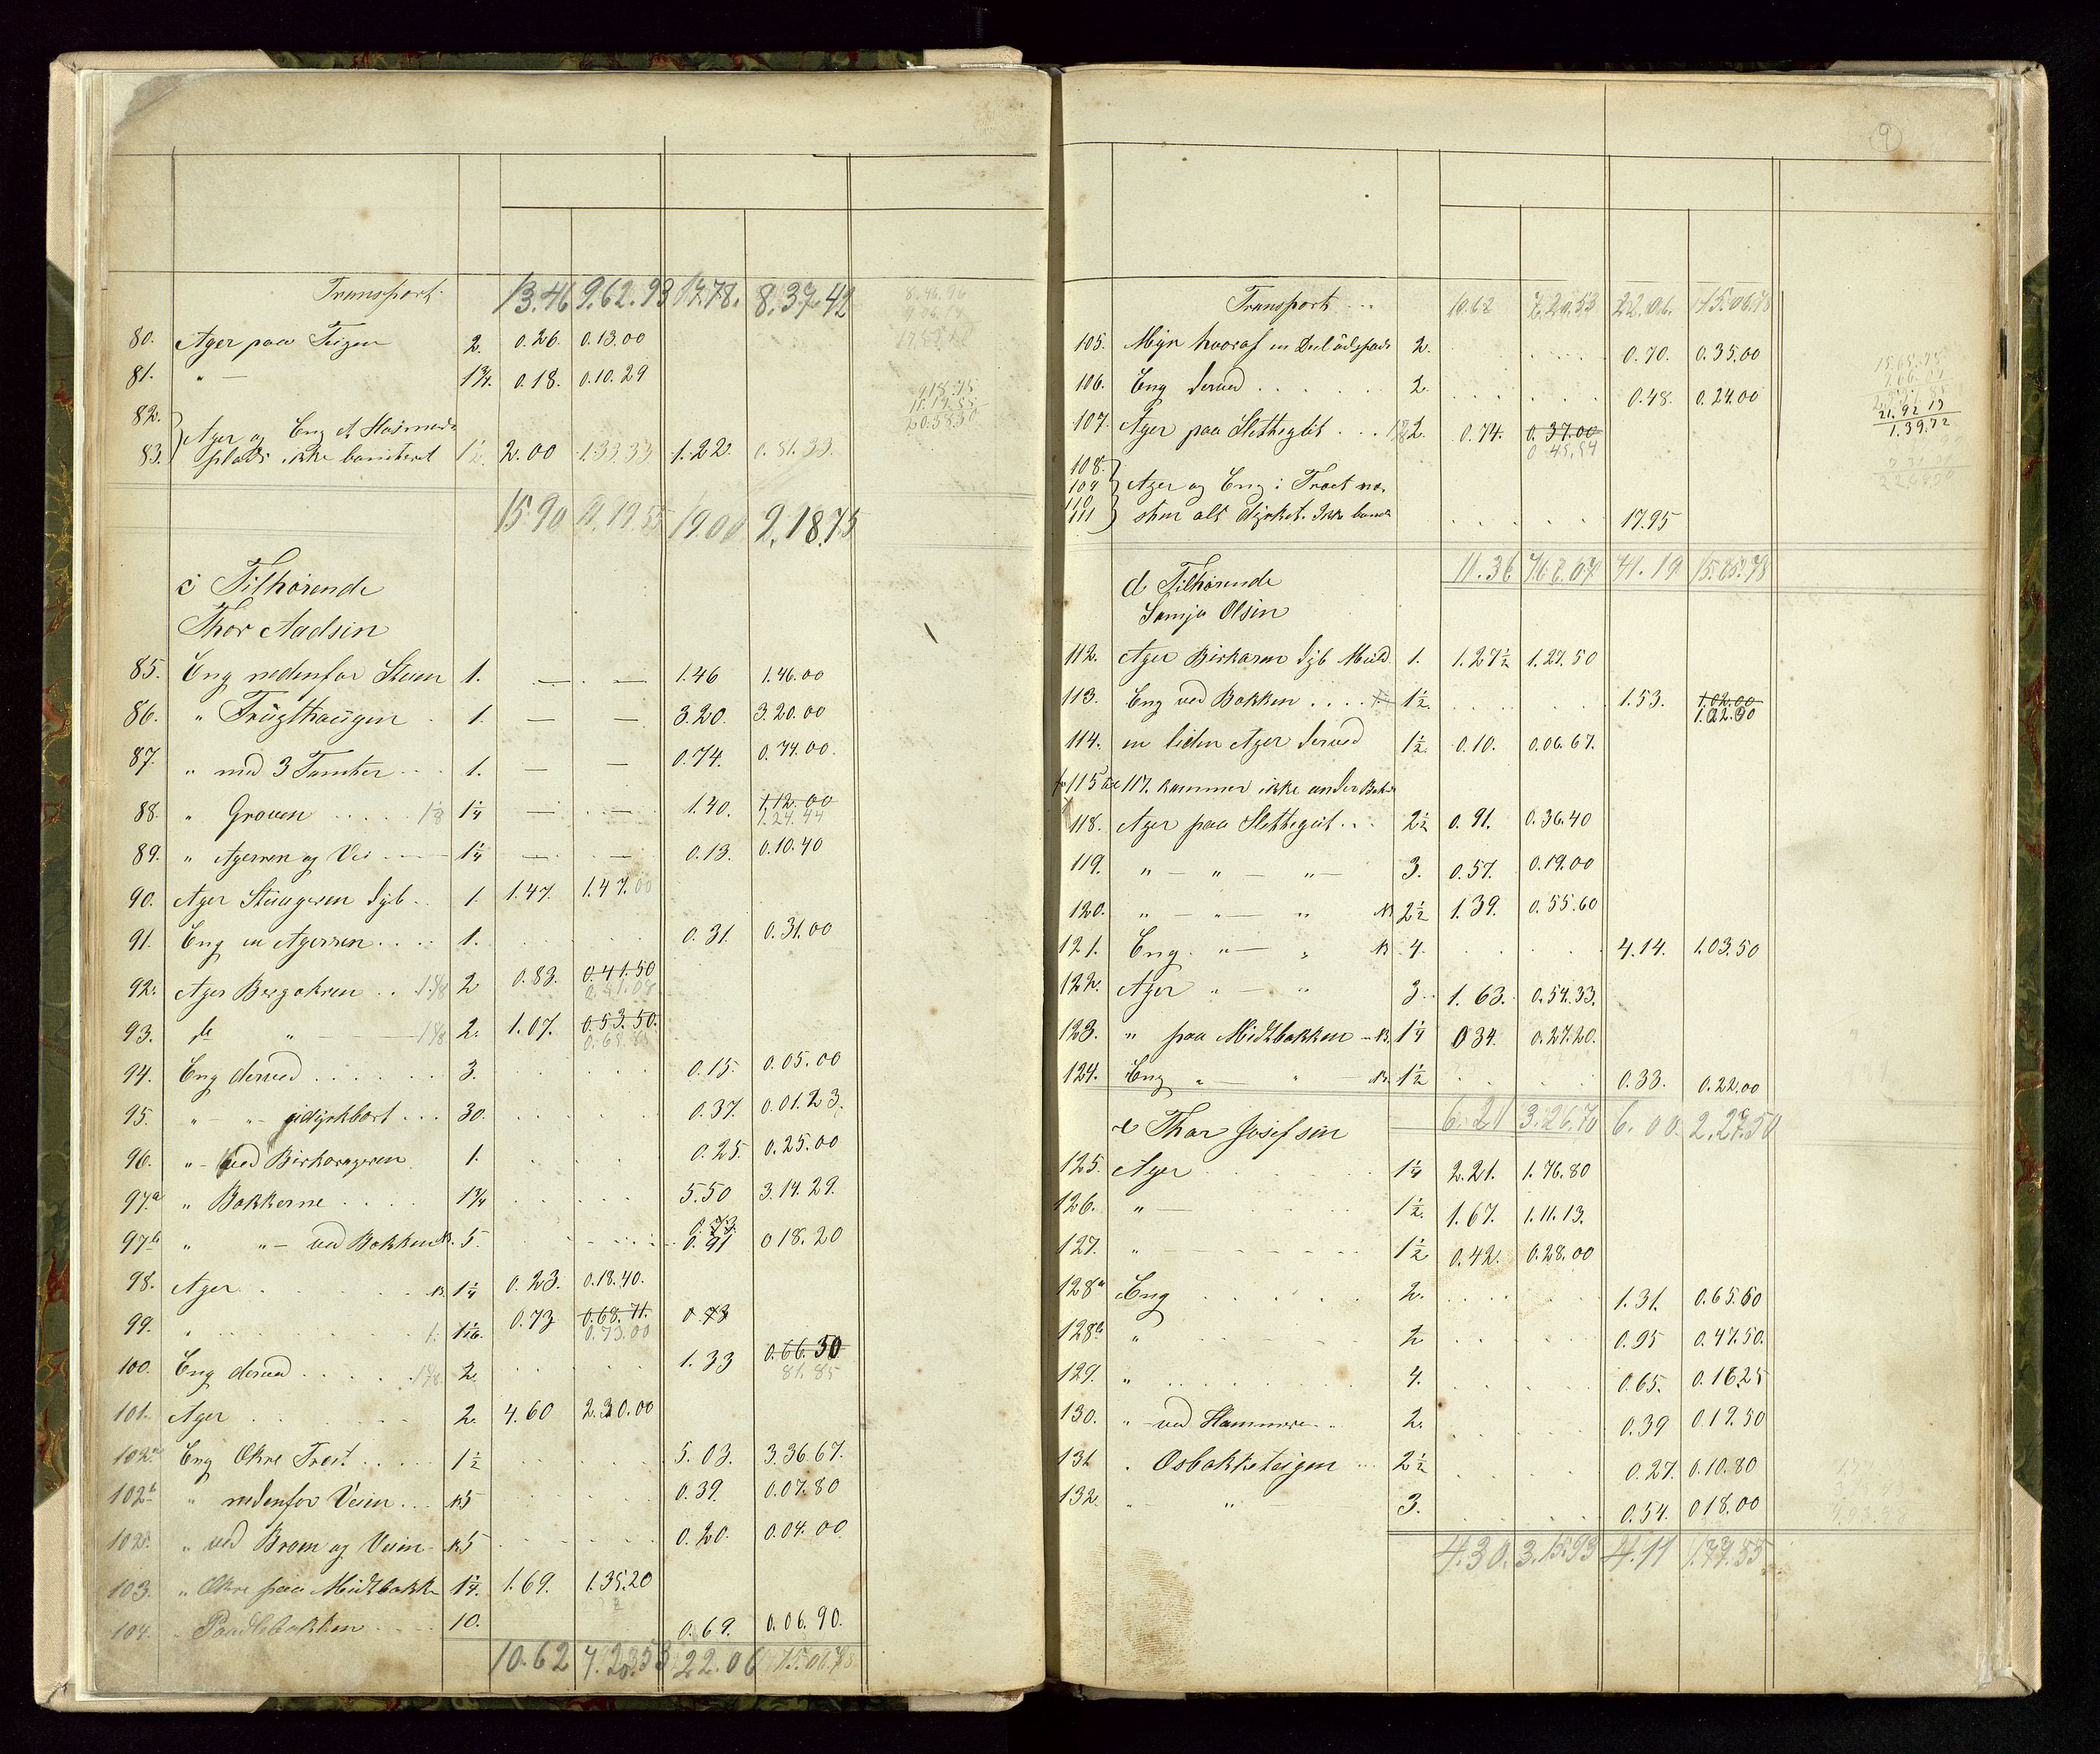 Transport. 13.46 9.62.93 17.78. 8.37.42
80. Ager paa Teigen 2. 0.26. 0.13.00
81. " — 1¾. 0.18. 0.10.29
82.
Ager og Eng et Husmands
83. plads ikke boniteret 1½. 2.00 1.33.33 1.22. 0.81.33.
15.90 19.00 9.18.75
c Tilhørende
Thor Aadsen
85. Eng nedenfor Stuen 1. — . — 1.46 1.46.00
86. " . 1. — — 3.20. 3.20.00
87. " med 3 Tomter . . . 1. — — 0.74. 0.74.00.
88. " Groven . . . . . 1⅛ 1¼ — . — 1.40. 1.12.00
1.24.44
89. " Ageren og Vei — 1¼ — . — 0.13. 0.10.40
90. Ager Dyb . . 1. 1.47. 1.47.00
91. Eng en Ageren . . . . 1. 0.31. 0.31.00
92. Ager Bergakren . . 1⅝ 2 0.83. 0.41.50
93. do " — 1⅝ 2. 1.07. 0.53.50.
94. Eng derved . . . . . . 3. 0.15. 0.05.00
95. " — " — udyrkbart . . . 30. 0.37. 0.01.23.
96. " — ved Birkorageren 1. 0.25. 0.25.00
97a " Bakkerne . . . . 1¾ 5.50 3.14.29.
0.73.
97b " " — ved Bakken N. 5. 0.91 0 18.20
98. Ager . . . . . . N. 1¼ 0.23. 0.18.40.
99. " . . . . . . 1. 1 1/16. 0.73 0.68.71. 0.73
0.73.00
100. Eng derved . . . . . 1⅝ 2. 1.33 0.66.50
81.85
101. Ager . . . . . . 2. 4.60 2.30.00
102a Eng Økre Træet . . . . 1½ 5.03. 3.36.67.
102b " nedenfor Veien . . . N5 0.39. 0.07.80
102c. " ved Broen og Veien — N5 0.20. 0.04.00
103. " Økre paa Midtbakk 1¼. 1.69. 1.35.20
104. " Paadlsbakken . . . . 10. 0.69. 0.06.90.
10.62 7.20.53 22.06 15.06.78
9
Transport . . . 10.62 7.20.53 22.06. 15.06.78
105. Myr hvoraf en Deel 2. 0.70. 0.35.00
106. Eng derved . . . . . 2. 0.48. 0.24.00
107. Ager paa Slettegut . . . 2. 0.74. 0.37.00
0.45.54
21.92.19
1.39.72
108.
109 Ager og Eng i Træet næ-
110
111 sten alt dyrket. Ikke bonit 17.95
11.36 7.66.07 41.19 15.65.78
d Tilhørende
Samja Olsen
112. Ager Birkaren Dyb Muld 1. 1.27½ 1.27.50
113. Eng ved Bakken . . . . 1½. 1.53. 1.02.00
1.22.00
114. en liden Ager derved 1½. 0.10. 0.06.67.
fr 115 til 117. kommer ikke under
118. Ager paa Slettegut . . . 2½ 0.91. 0.36.40
119. " — " — " — 3. 0.57. 0.19.00
120. " — " — " N 2½ 1.39. 0.55.60
121. Eng. " — " N. 4. 4.14. 1.03.50
122. Ager " — " 3. 1.63. 0.54.33.
123. " paa Midtbakken — N. 1¼ 0 34. 0.27.20.
124. Eng " — " — N. 1½ 0.33. 0.22.00
6.21 3.26.70 6.00. 2.27.50
e Thor Josefsen
125. Ager . . . . . . 1¼ 2.21. 1.76.80
126. " — 1½. 1.67. 1.11.13.
127. " — 1½ 0.42. 0.28.00
128a Eng . . . . . 2. 1.31. 0.65.50
128b " 2 0.95 0.47.50.
129. " . . . . . . 4. 0.65. 0.16.25
130. " ved Hammeren . . 2. 0.39 0.19.50
131. " Osbakketeigen . . . 2½ 0.27. 0.10.80
132. " " 3. 0.54. 0 18.00
4.30. 3.15.93 4.11 1.77.55